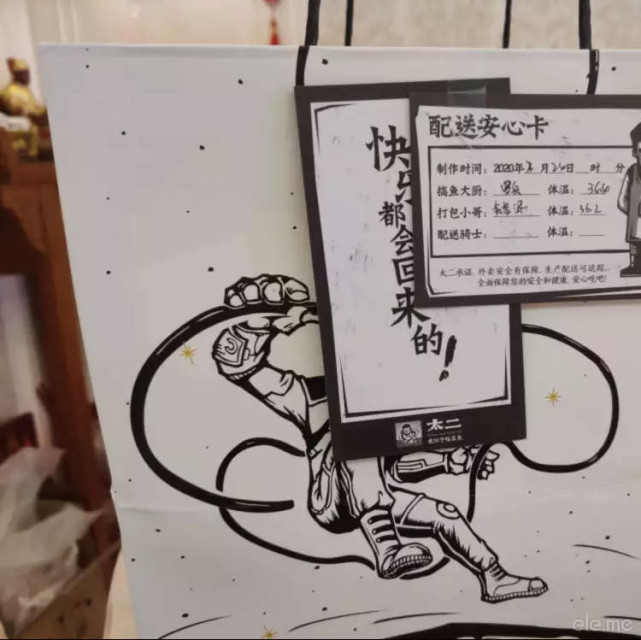 快乐都会回来的!
太二
老坛子酸菜鱼
配送安心卡
制作时间: 2020年 月 日 时 分
搞鱼大厨: 体温:
打包小哥: 体温: 36.2
配送骑士: 体温:
太二承诺, 外卖安全有保障, 生产配送可追踪,
全面保障您的安全和健康, 安心吃吧!
ele.me